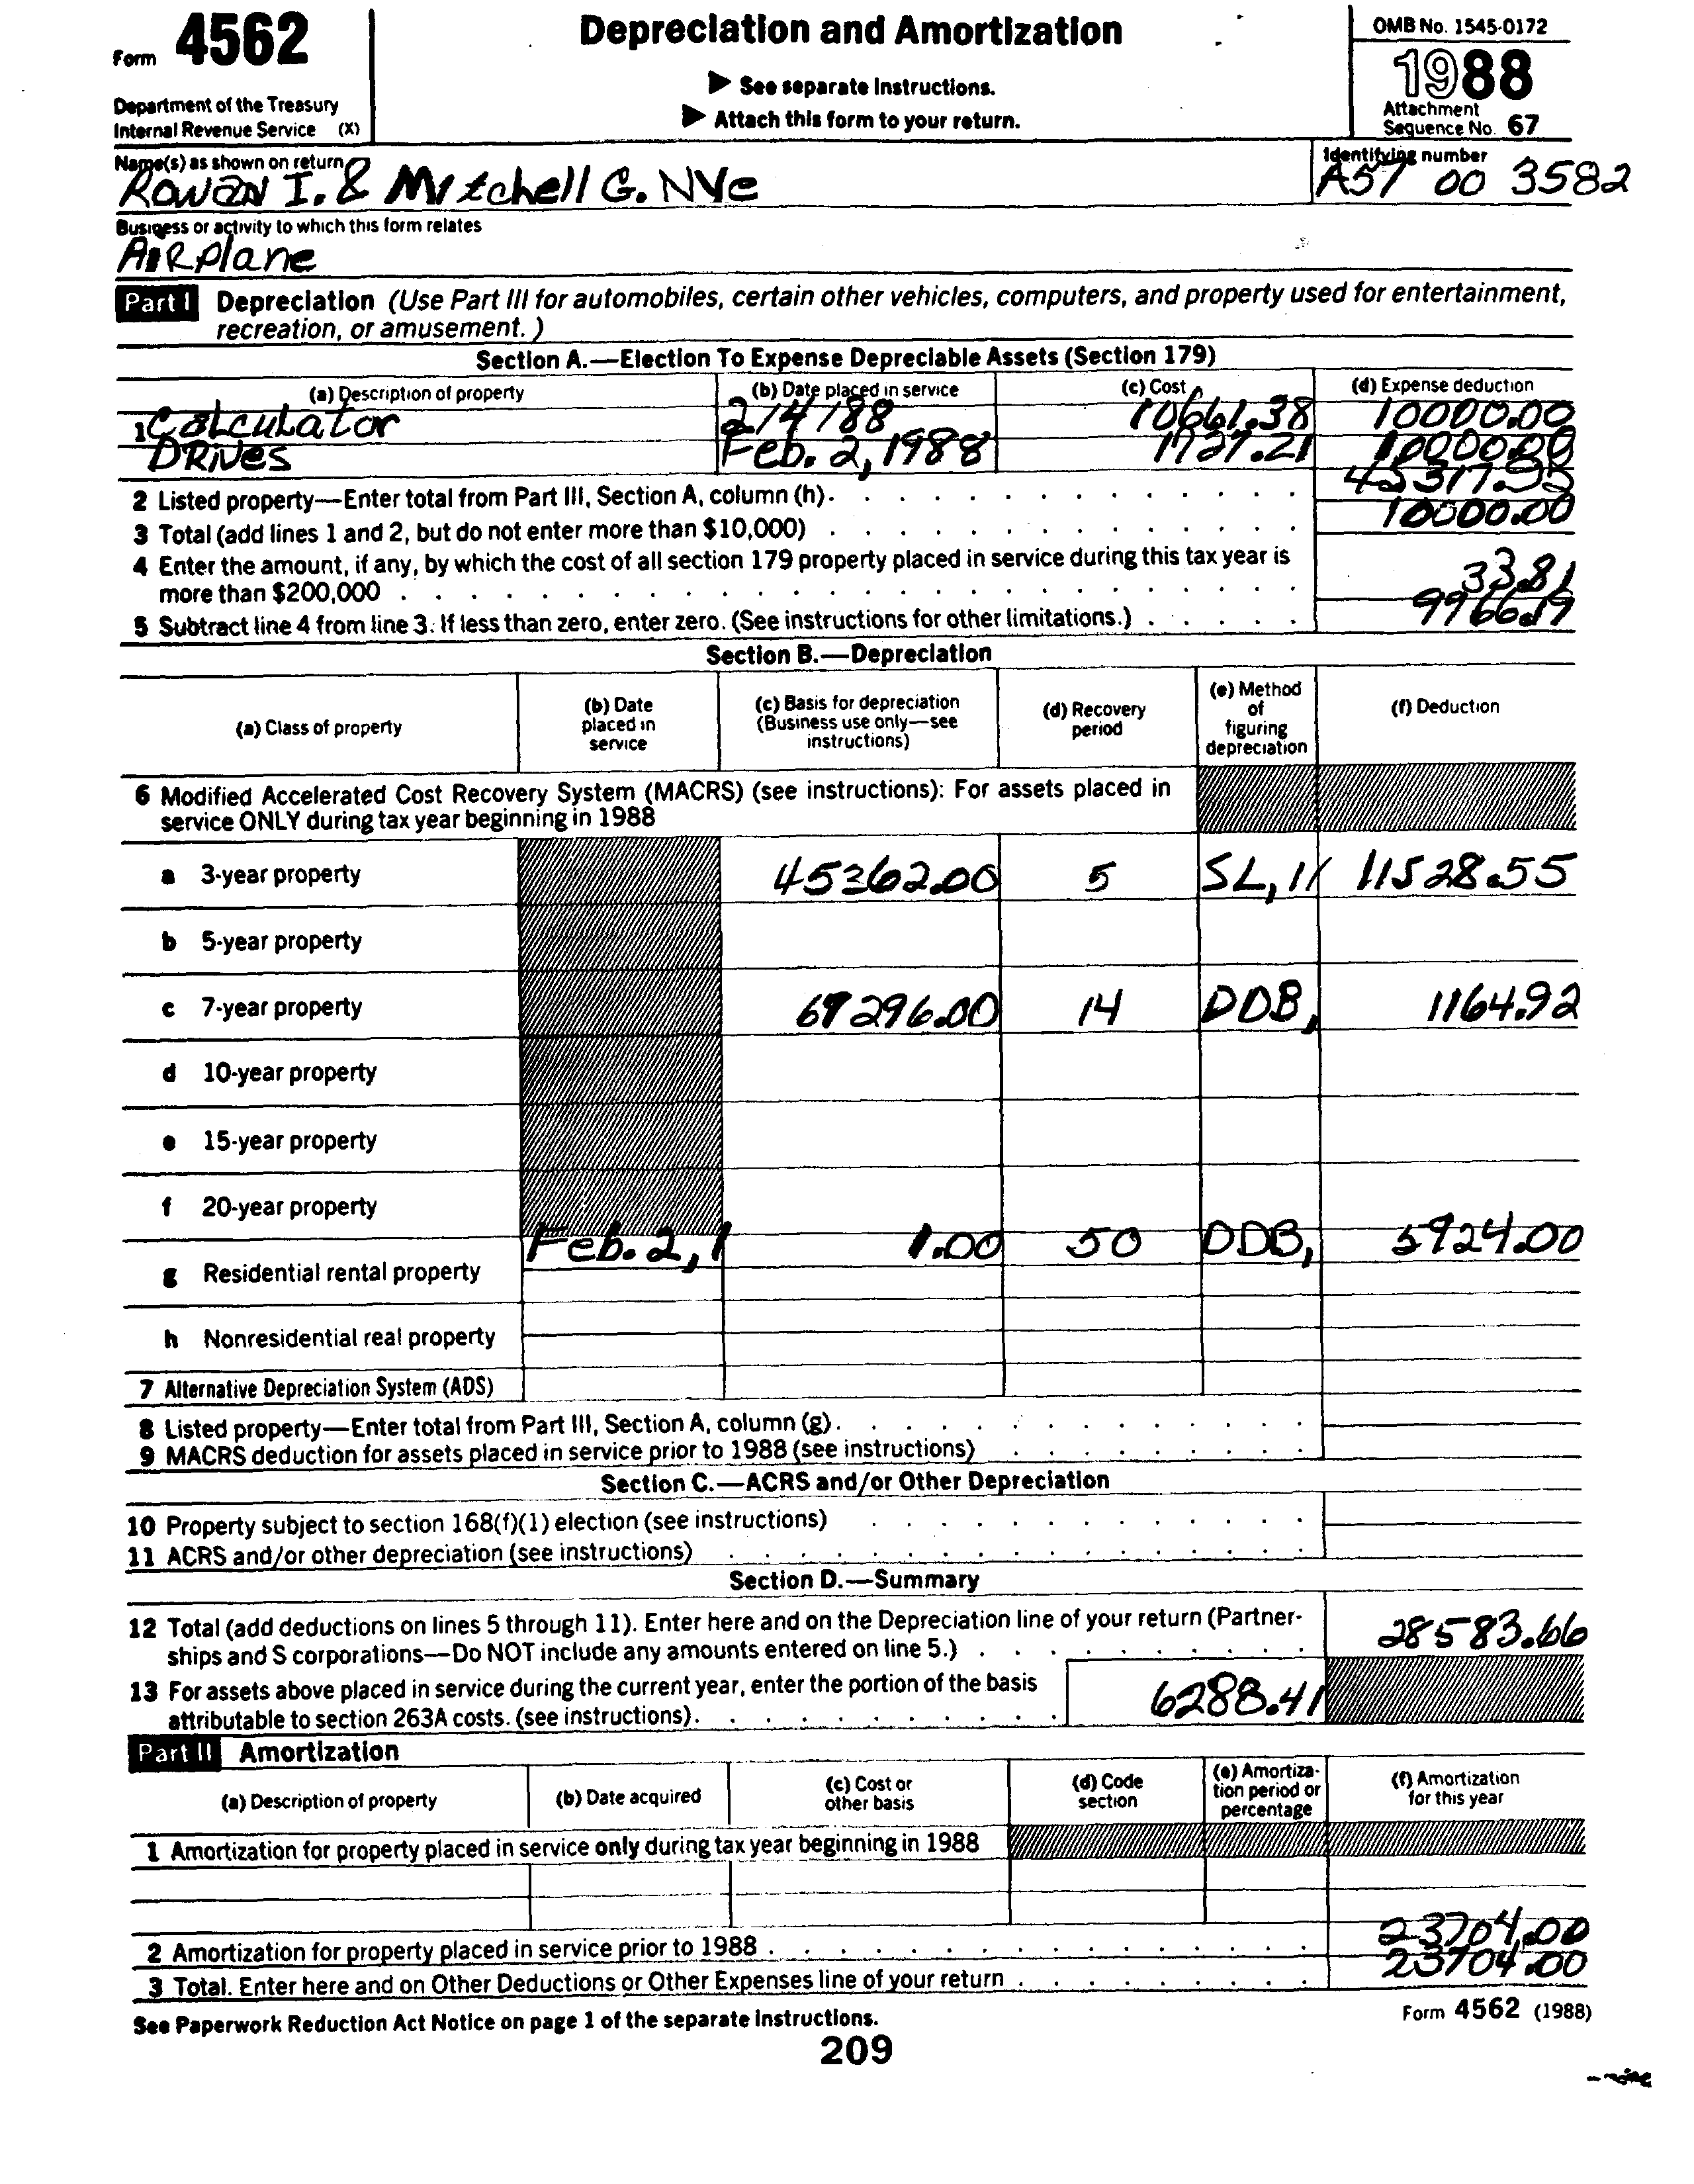 Form 4562
Depreciation and Amortization
OMB No. 1545-0172
1988
▶ See separate Instructions.
▶ Attach this form to your return.
Department of the Treasury
Internal Revenue Service (X)
Attachment
Sequence No. 67
Name(s) as shown on return
Identifying number
Rowan I. & Mitchell G. Nye
A57 00 3582
Business or activity to which this form relates
Airplane
Part I Depreciation (Use Part III for automobiles, certain other vehicles, computers, and property used for entertainment,
recreation, or amusement.)
Section A.—Election To Expense Depreciable Assets (Section 179)
(a) Description of property (b) Date placed in service (c) Cost (d) Expense deduction
1 Calculator 2/4/88 10661.38 10000.00
Drives Feb. 2, 1988 1727.21 10000.00
2 Listed property—Enter total from Part III, Section A, column (h). 45317.95
3 Total (add lines 1 and 2, but do not enter more than $10,000) 10000.00
4 Enter the amount, if any, by which the cost of all section 179 property placed in service during this tax year is
more than $200,000 33.81
5 Subtract line 4 from line 3. If less than zero, enter zero. (See instructions for other limitations.) 9966.19
Section B.—Depreciation
(a) Class of property (b) Date placed in service (c) Basis for depreciation (Business use only—see instructions) (d) Recovery period (e) Method of figuring depreciation (f) Deduction
6 Modified Accelerated Cost Recovery System (MACRS) (see instructions): For assets placed in
service ONLY during tax year beginning in 1988
a 3-year property 45362.00 5 SL, 11528.55
b 5-year property
c 7-year property 296.00 14 DDB, 1164.92
d 10-year property
e 15-year property
f 20-year property
Feb. 2, 1 1.00 50 DDB, 5924.00
g Residential rental property
h Nonresidential real property
7 Alternative Depreciation System (ADS)
8 Listed property—Enter total from Part III, Section A, column (g).
9 MACRS deduction for assets placed in service prior to 1988 (see instructions)
Section C.—ACRS and/or Other Depreciation
10 Property subject to section 168(f)(1) election (see instructions)
11 ACRS and/or other depreciation (see instructions)
Section D.—Summary
12 Total (add deductions on lines 5 through 11). Enter here and on the Depreciation line of your return (Partner-
ships and S corporations—Do NOT include any amounts entered on line 5.) 28583.66
13 For assets above placed in service during the current year, enter the portion of the basis
attributable to section 263A costs. (see instructions). 6288.41
Part II Amortization
(a) Description of property (b) Date acquired (c) Cost or other basis (d) Code section (e) Amortiza- tion period or percentage (f) Amortization for this year
1 Amortization for property placed in service only during tax year beginning in 1988
2 Amortization for property placed in service prior to 1988 23704.00
3 Total. Enter here and on Other Deductions or Other Expenses line of your return 23704.00
See Paperwork Reduction Act Notice on page 1 of the separate Instructions.
Form 4562 (1988)
209